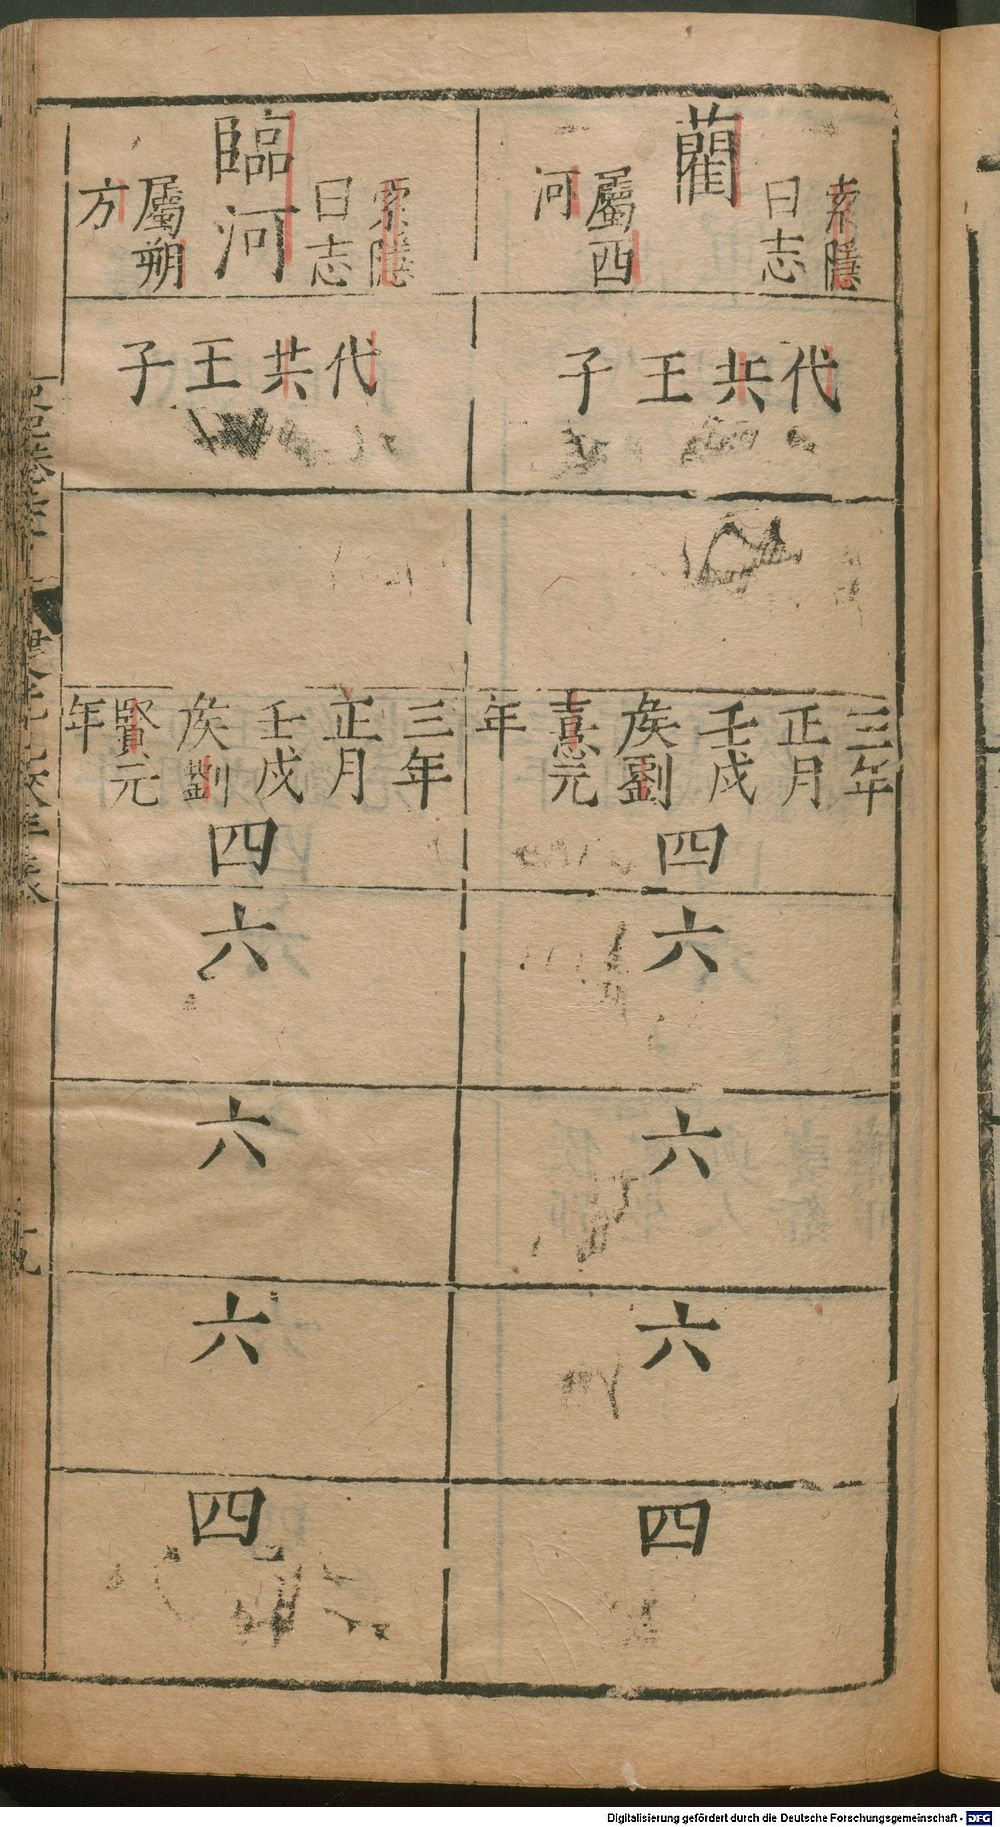 藺
索隱
曰志
屬西
河
代共王子
三年
正月
壬戌
侯劉
憙元
年
四
六
六
六
四
臨河
索隱
曰志
屬朔
方
代共王子
三年
正月
壬戌
侯劉
賢元
年
四
六
六
六
四
Digitalisierung gefördert durch die Deutsche Forschungsgemeinschaft - DFG